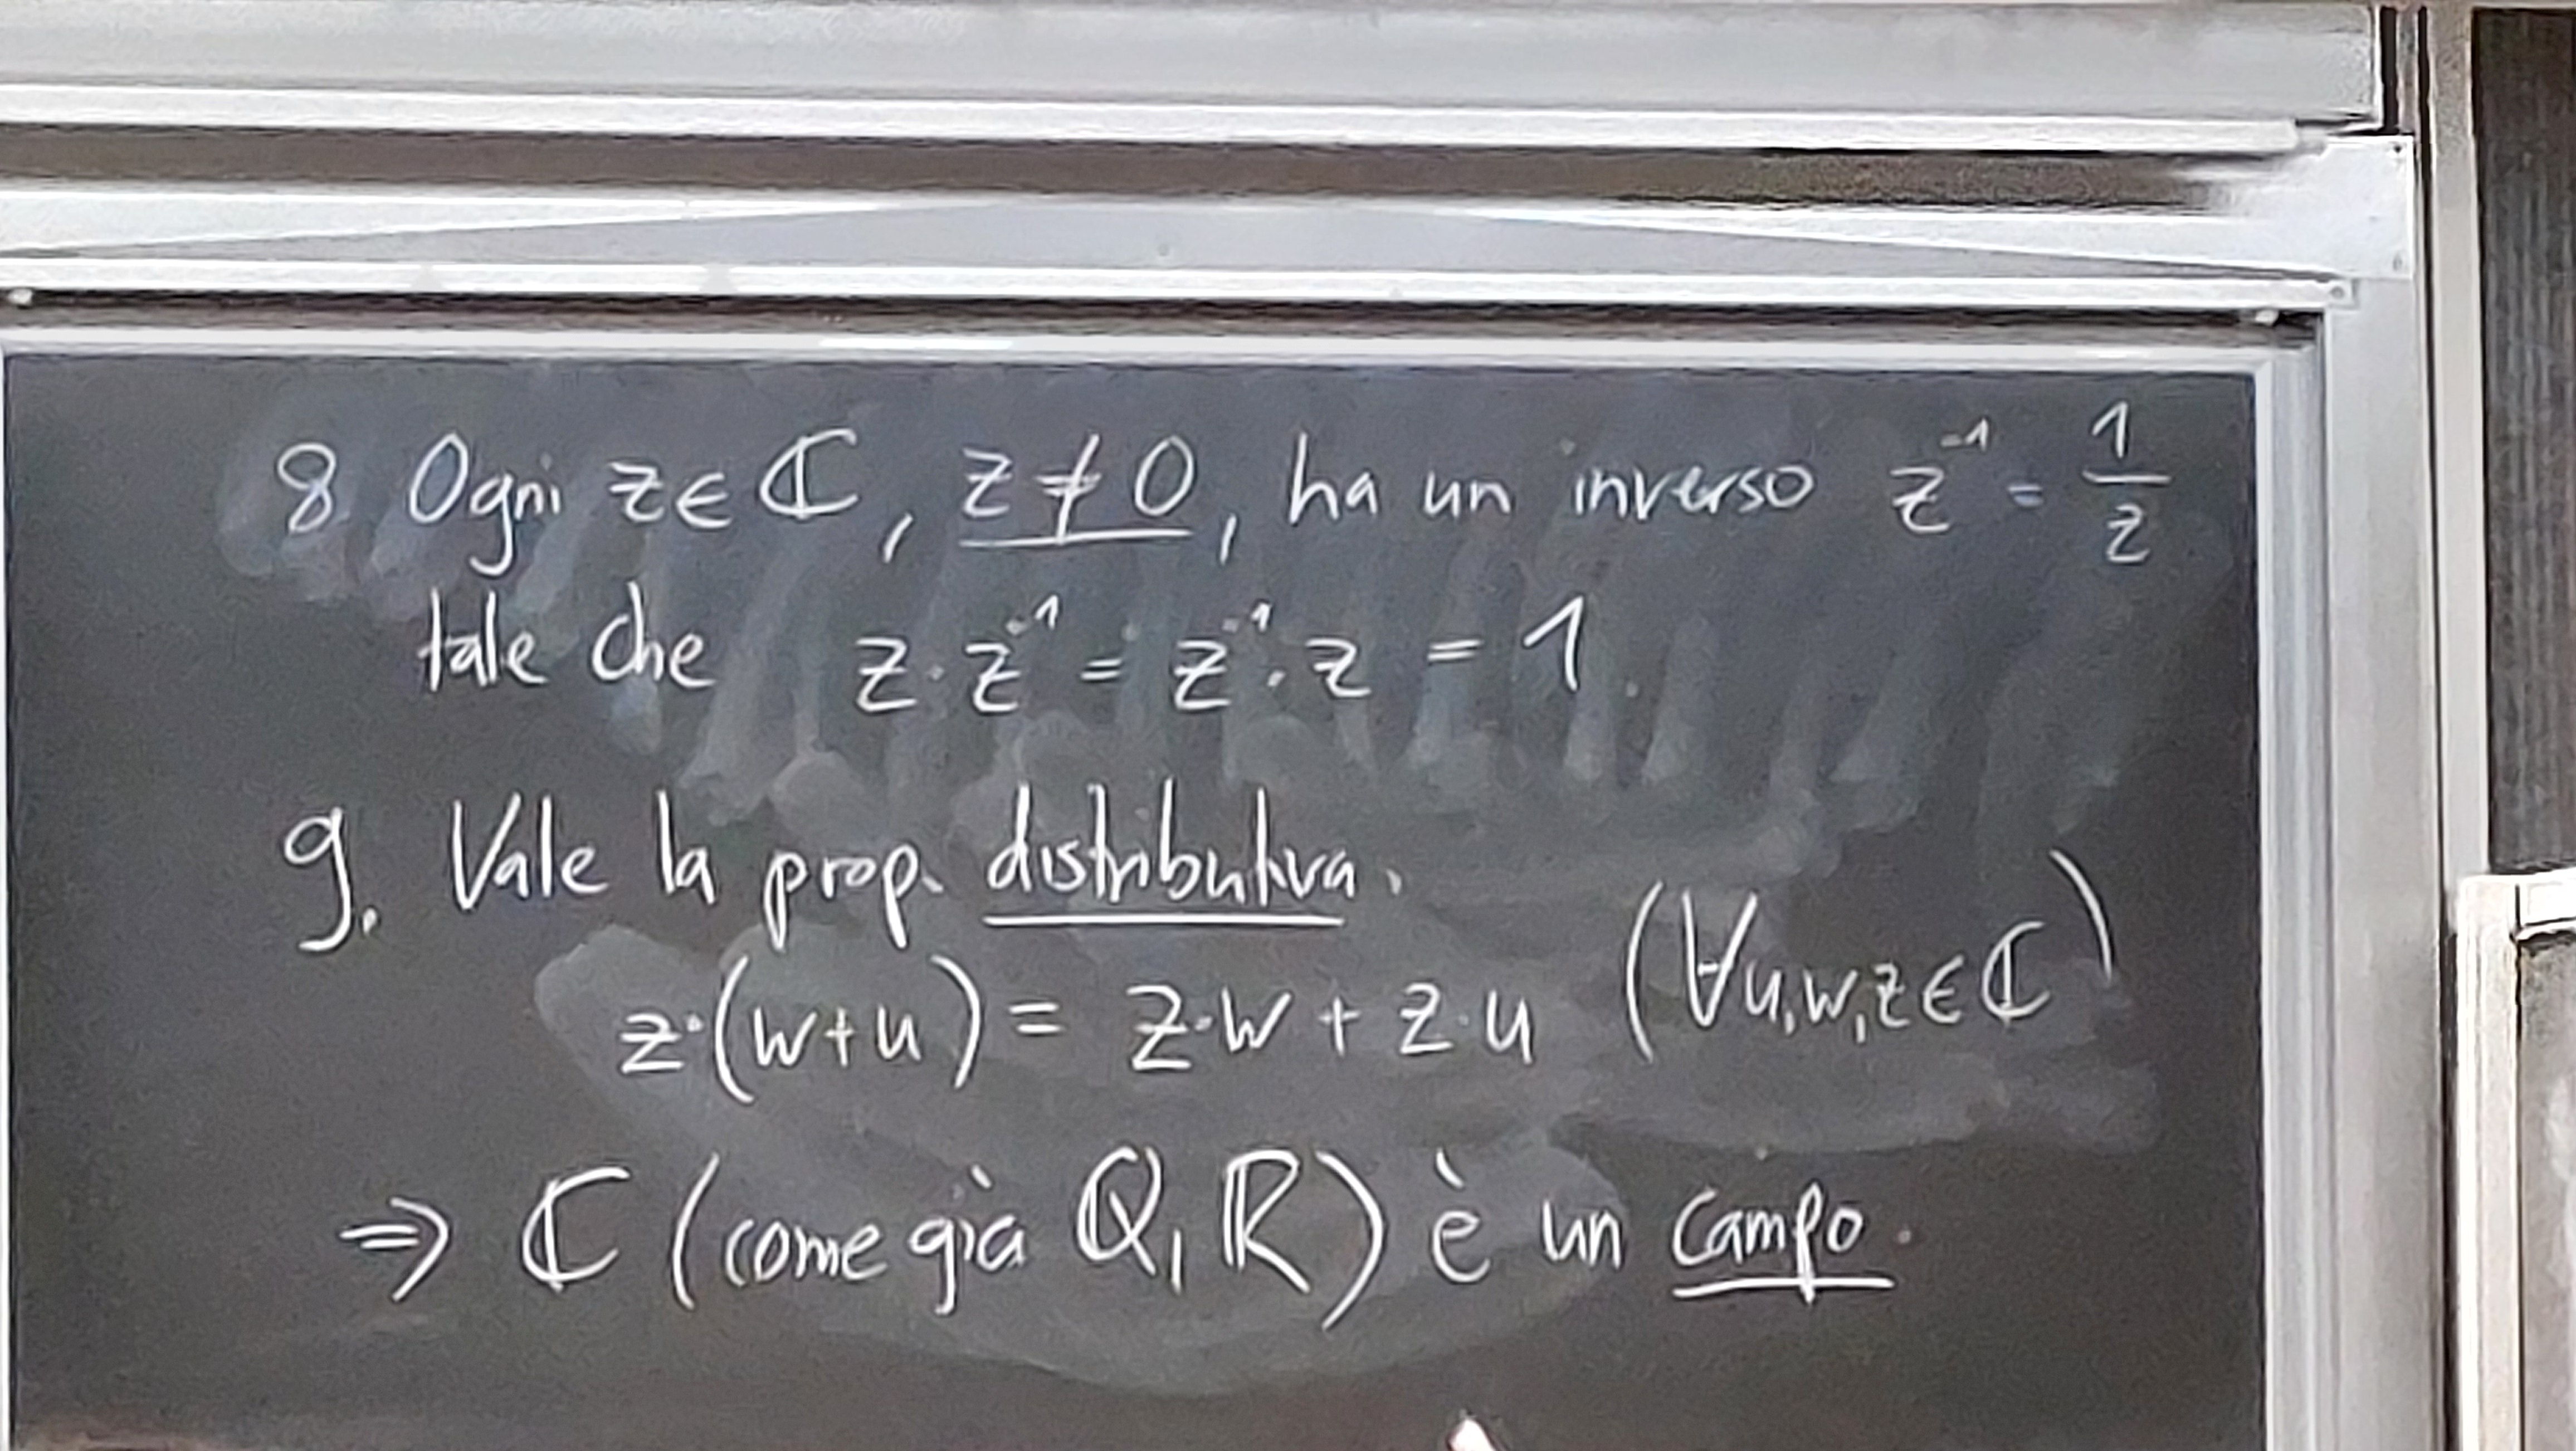 8 Ogni z ∈ ℂ, z ≠ 0, ha un inverso z⁻¹ = 1/z
tale che z · z⁻¹ = z⁻¹ · z = 1.
9. Vale la prop. distributiva.
z·(w+u) = z·w + z·u (∀u,w,z ∈ ℂ)
⇒ ℂ (come già ℚ, ℝ) è un campo.